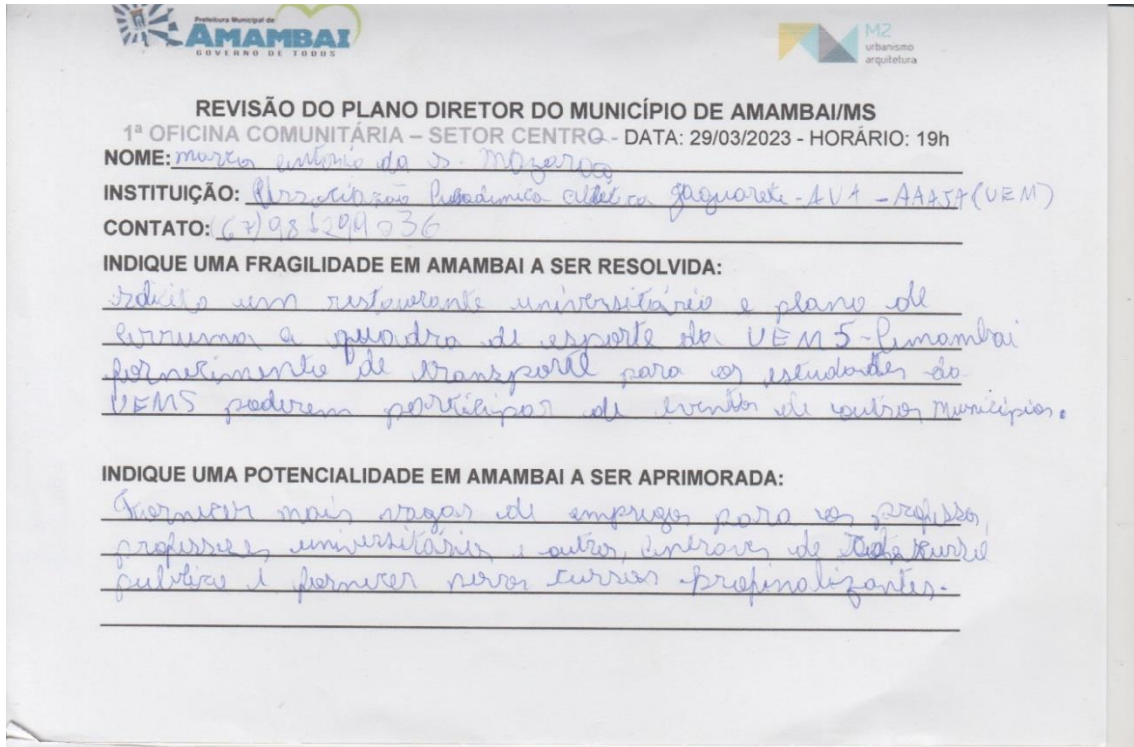 Prefeitura Municipal de
AMAMBAI
GOVERNO DE TODOS
M2
urbanismo
arquitetura
REVISÃO DO PLANO DIRETOR DO MUNICÍPIO DE AMAMBAI/MS
1ª OFICINA COMUNITÁRIA – SETOR CENTRO - DATA: 29/03/2023 - HORÁRIO: 19h
NOME: antonio da s.
INSTITUIÇÃO: Jaguarete - AVA - AAAJA (UEM)
CONTATO: (67)
INDIQUE UMA FRAGILIDADE EM AMAMBAI A SER RESOLVIDA:
um restaurante universitário e plano de
a quadra de esporte da UEMS-Amambai
fornecimento de transporte para os estudantes da
UEMS poderem participar de eventos de outros municípios.
INDIQUE UMA POTENCIALIDADE EM AMAMBAI A SER APRIMORADA:
Fornecer mais vagas de empregos para os
universitários e outros, de
e fornecer novos cursos